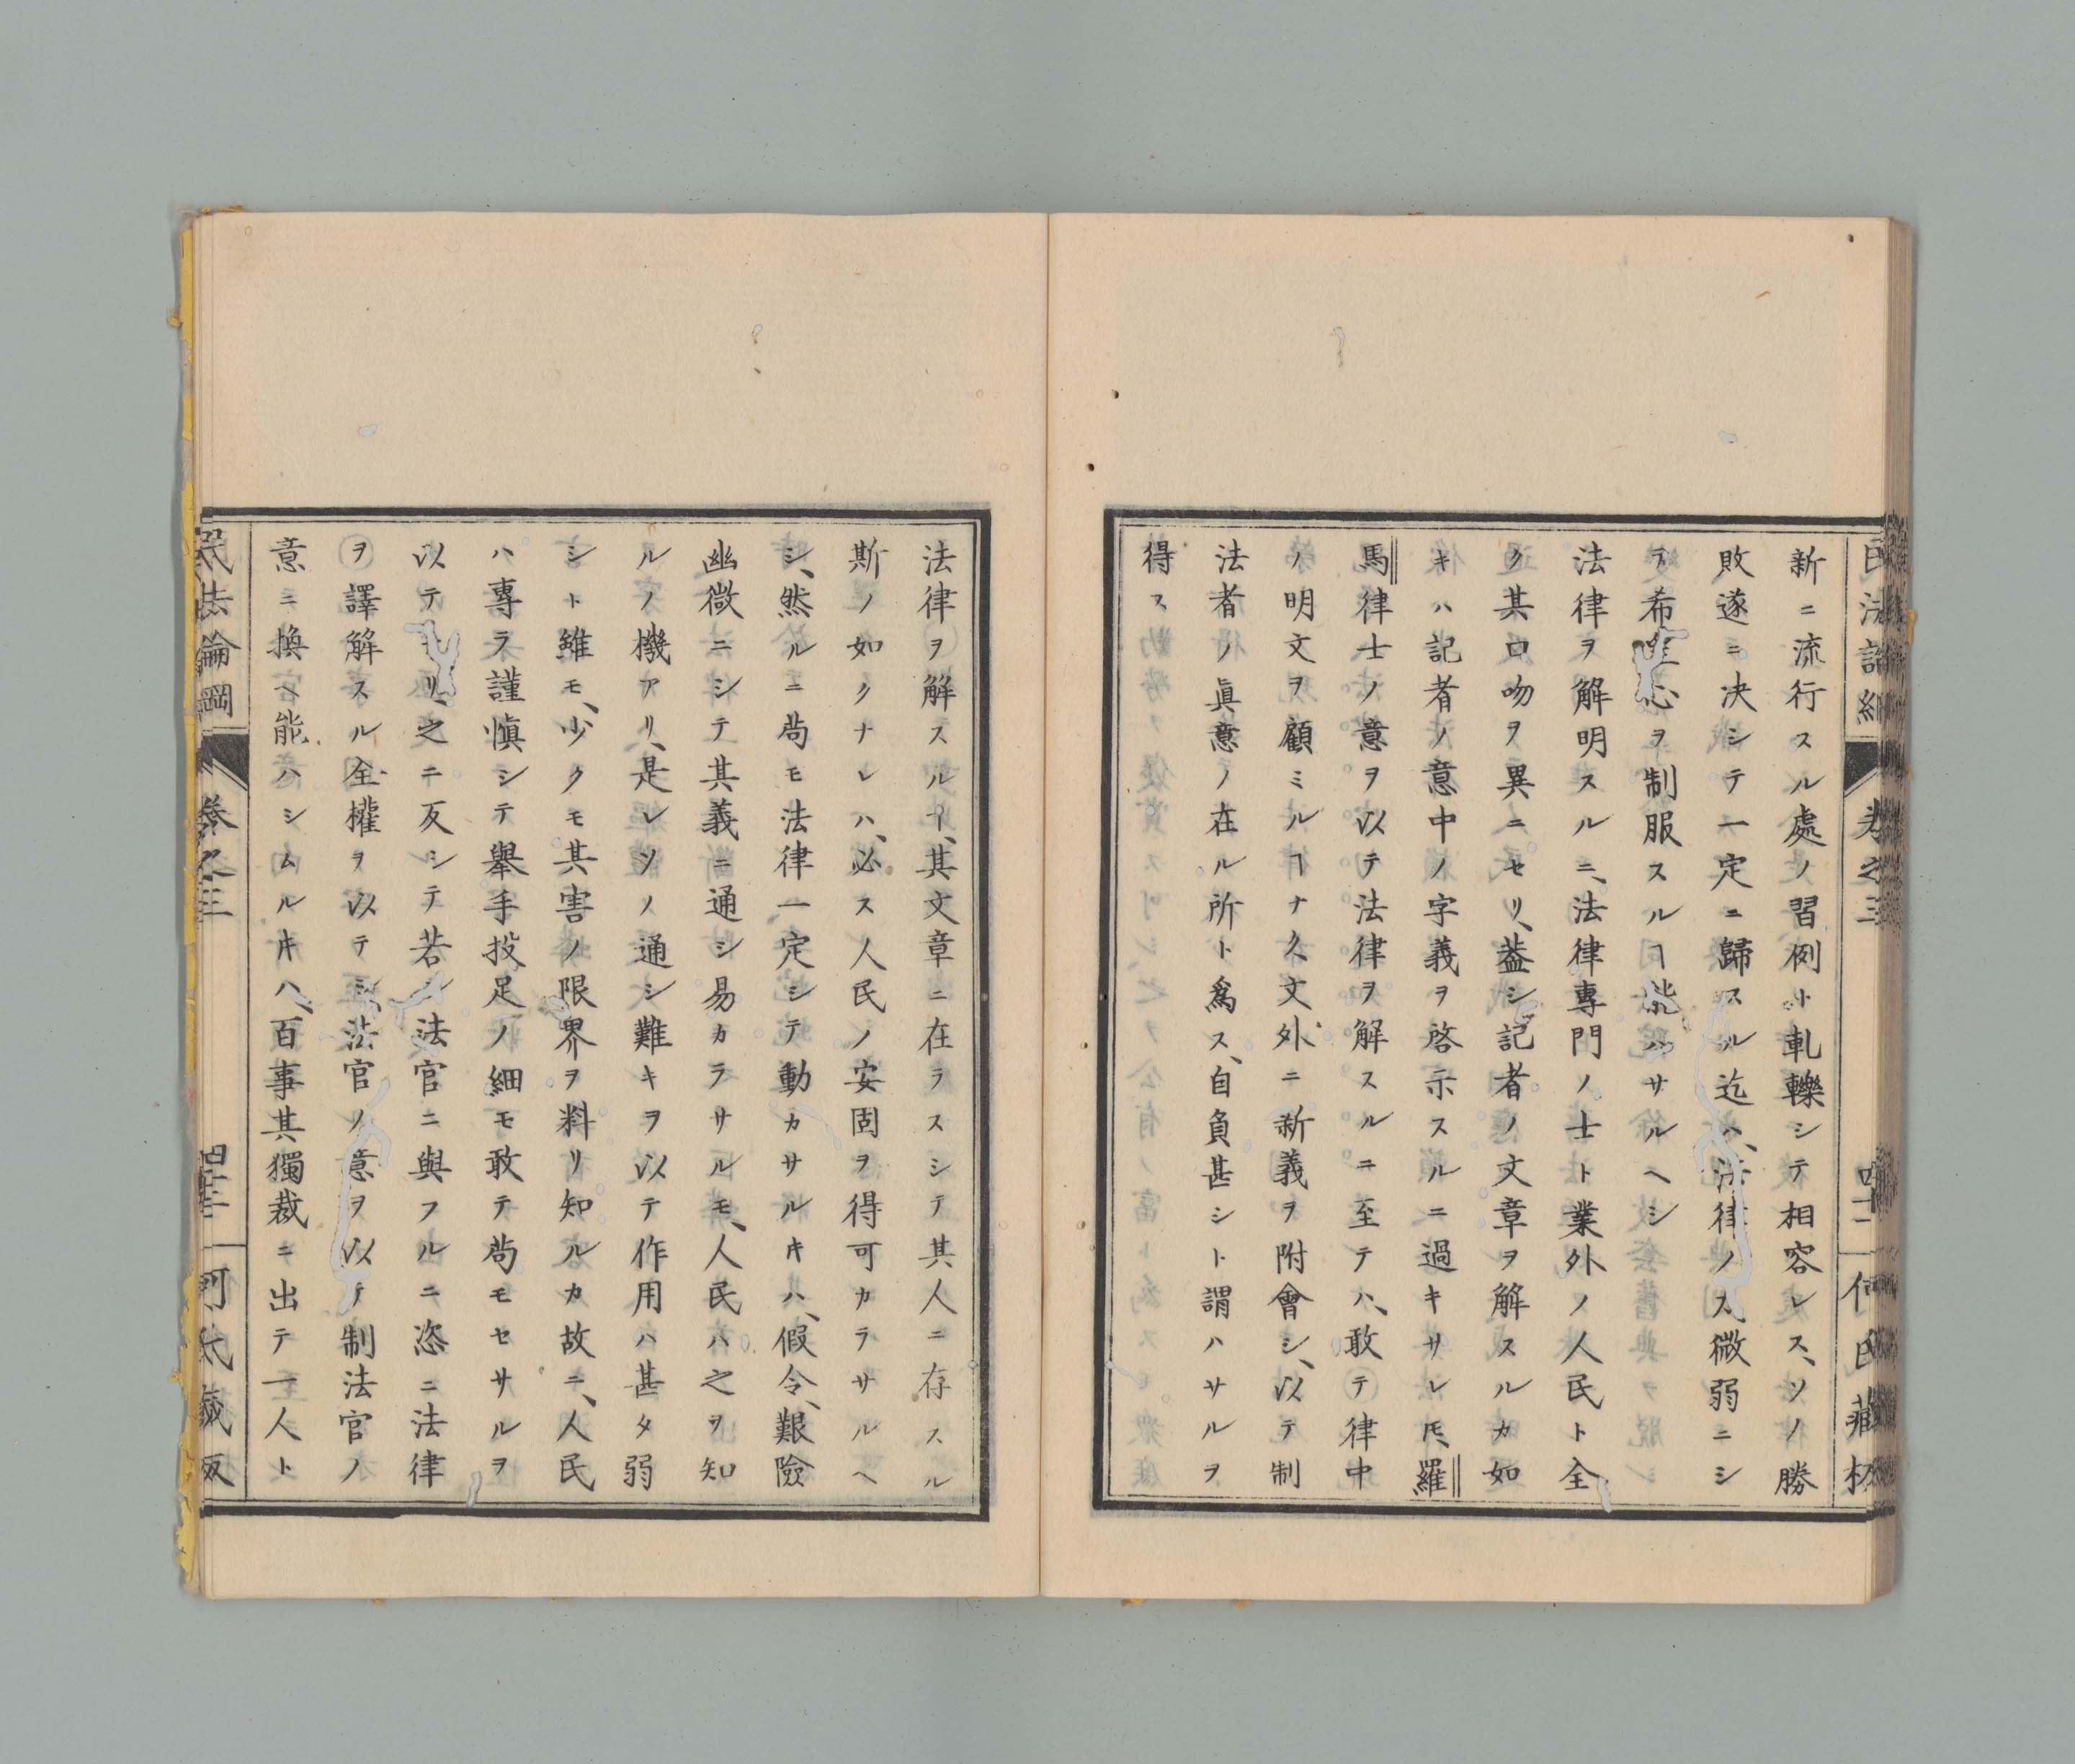 新ニ流行スル處ノ習例ト軋轢シテ相容レス、ソノ勝
敗遂ニ決シテ一定ニ歸スル迄ハ、法律ノ力微弱ニシ
テ希望心ヲ制服スルヿ能ハサルヘシ
法律ヲ解明スルニ、法律專門ノ士ト業外ノ人民ト全
ク其口吻ヲ異ニセリ、蓋シ記者ノ文章ヲ解スルカ如
キハ記者ノ意中ノ字義ヲ啓示スルニ過キサレ𪜈、羅
馬律士ノ意ヲ以テ法律ヲ解スルニ至テハ、敢テ律中
ノ明文ヲ顧ミルヿナク文外ニ新義ヲ附會シ、以テ制
法者ノ眞意ノ在ル所ト爲ス、自負甚シト謂ハサルヲ
得ス
民法論綱 卷之三 四十二 何氏藏板
法律ヲ解スルヿ、其文章ニ在ラスシテ其人ニ存スル
斯ノ如クナレハ、必ス人民ノ安固ヲ得可カラサルヘ
シ、然ルニ茍モ法律一定シテ動カサルルキハ、假令、艱險
幽微ニシテ其義ニ通シ易カラサルモ、人民ハ之ヲ知
ルノ機アリ、是レソノ通シ難キヲ以テ作用ハ甚タ弱
シト雖モ、少クモ其害ノ限界ヲ料リ知ルカ故ニ、人民
ハ專ラ謹愼シテ擧手投足ノ細モ敢テ茍モセサルヲ
以テナリ、之ニ反シテ若シ法官ニ與フルニ恣ニ法律
ヲ譯解スル全權ヲ以テシ、法官ノ意ヲ以テ制法官ノ
意ニ換ヘ能ハシムルキハ、百事其獨裁ニ出テ一人ト
民法論綱 卷之三 四十三 何氏藏板